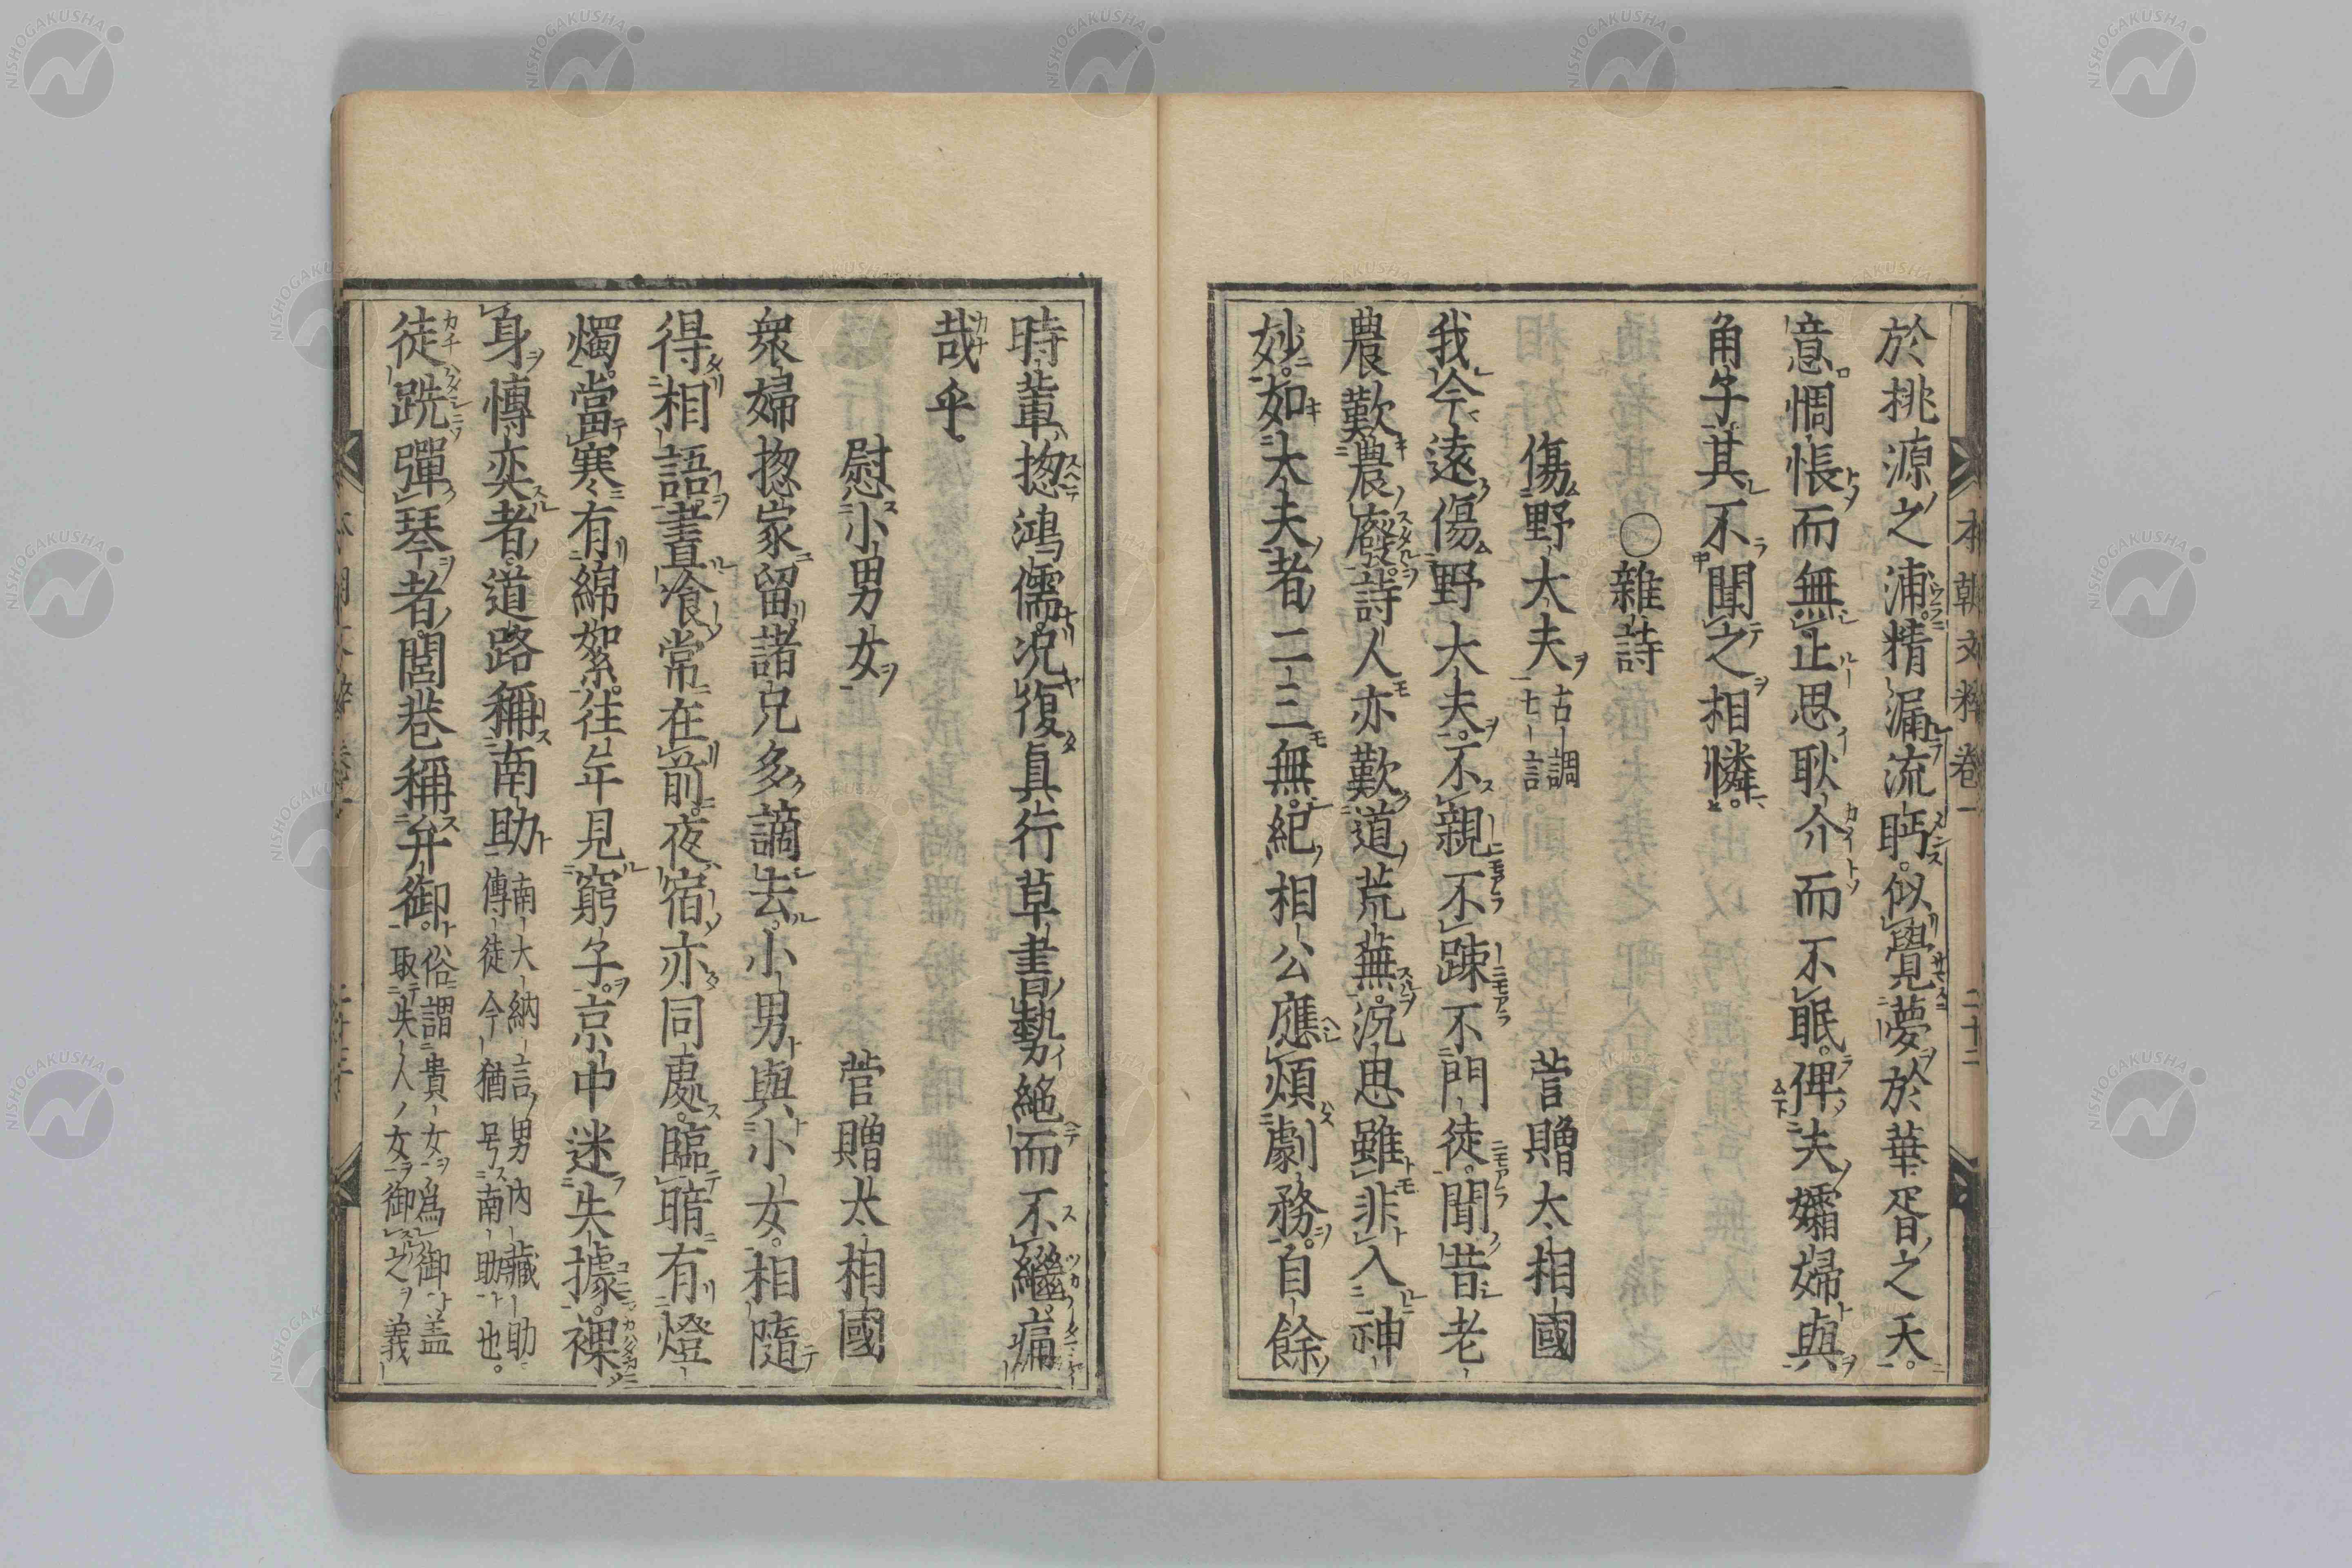 於桃源之浦精漏流眄似覺夢於華胥之天
意惆悵而無止思耿介而不眠俾夫孀婦與
角子其不聞之相憐
〇雜詩
傷野大夫 古調七言 菅贈太相國
我今遠傷野大夫不親不踈不門徒聞昔老
農歎農廢詩人亦歎道荒蕪況思雖非入神
妙如大夫者二三無紀相公應煩劇務自餘
時輩揔鴻儒況復真行草書勢絶而不繼痛
哉乎
慰小男女 菅贈太相國
衆婦揔家留諸兄多謫去小男與小女相隨
得相語晝飡常在前夜宿亦同處臨暗有燈
燭當寒有綿絮往年見窮子京中迷失據裸
身博奕者道路稱南助 南大納言男内藏助傳徒今猶号南助也
徒跣彈琴者閭巷稱弁御 俗謂貴女爲御盖取夫人女御之義
本朝文粹卷一 二十二
NISHOGAKUSHA